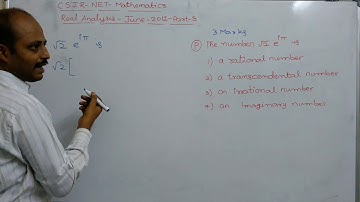 CSIR-NET- Mathematics
Real Analysis - June-2012-Part-B
√2 e^{iπ} is
√2 [
3 Marks
P) The number √2 e^{iπ} is
1) a rational number
2) a transcendental number
3) an irrational number
4) an imaginary number